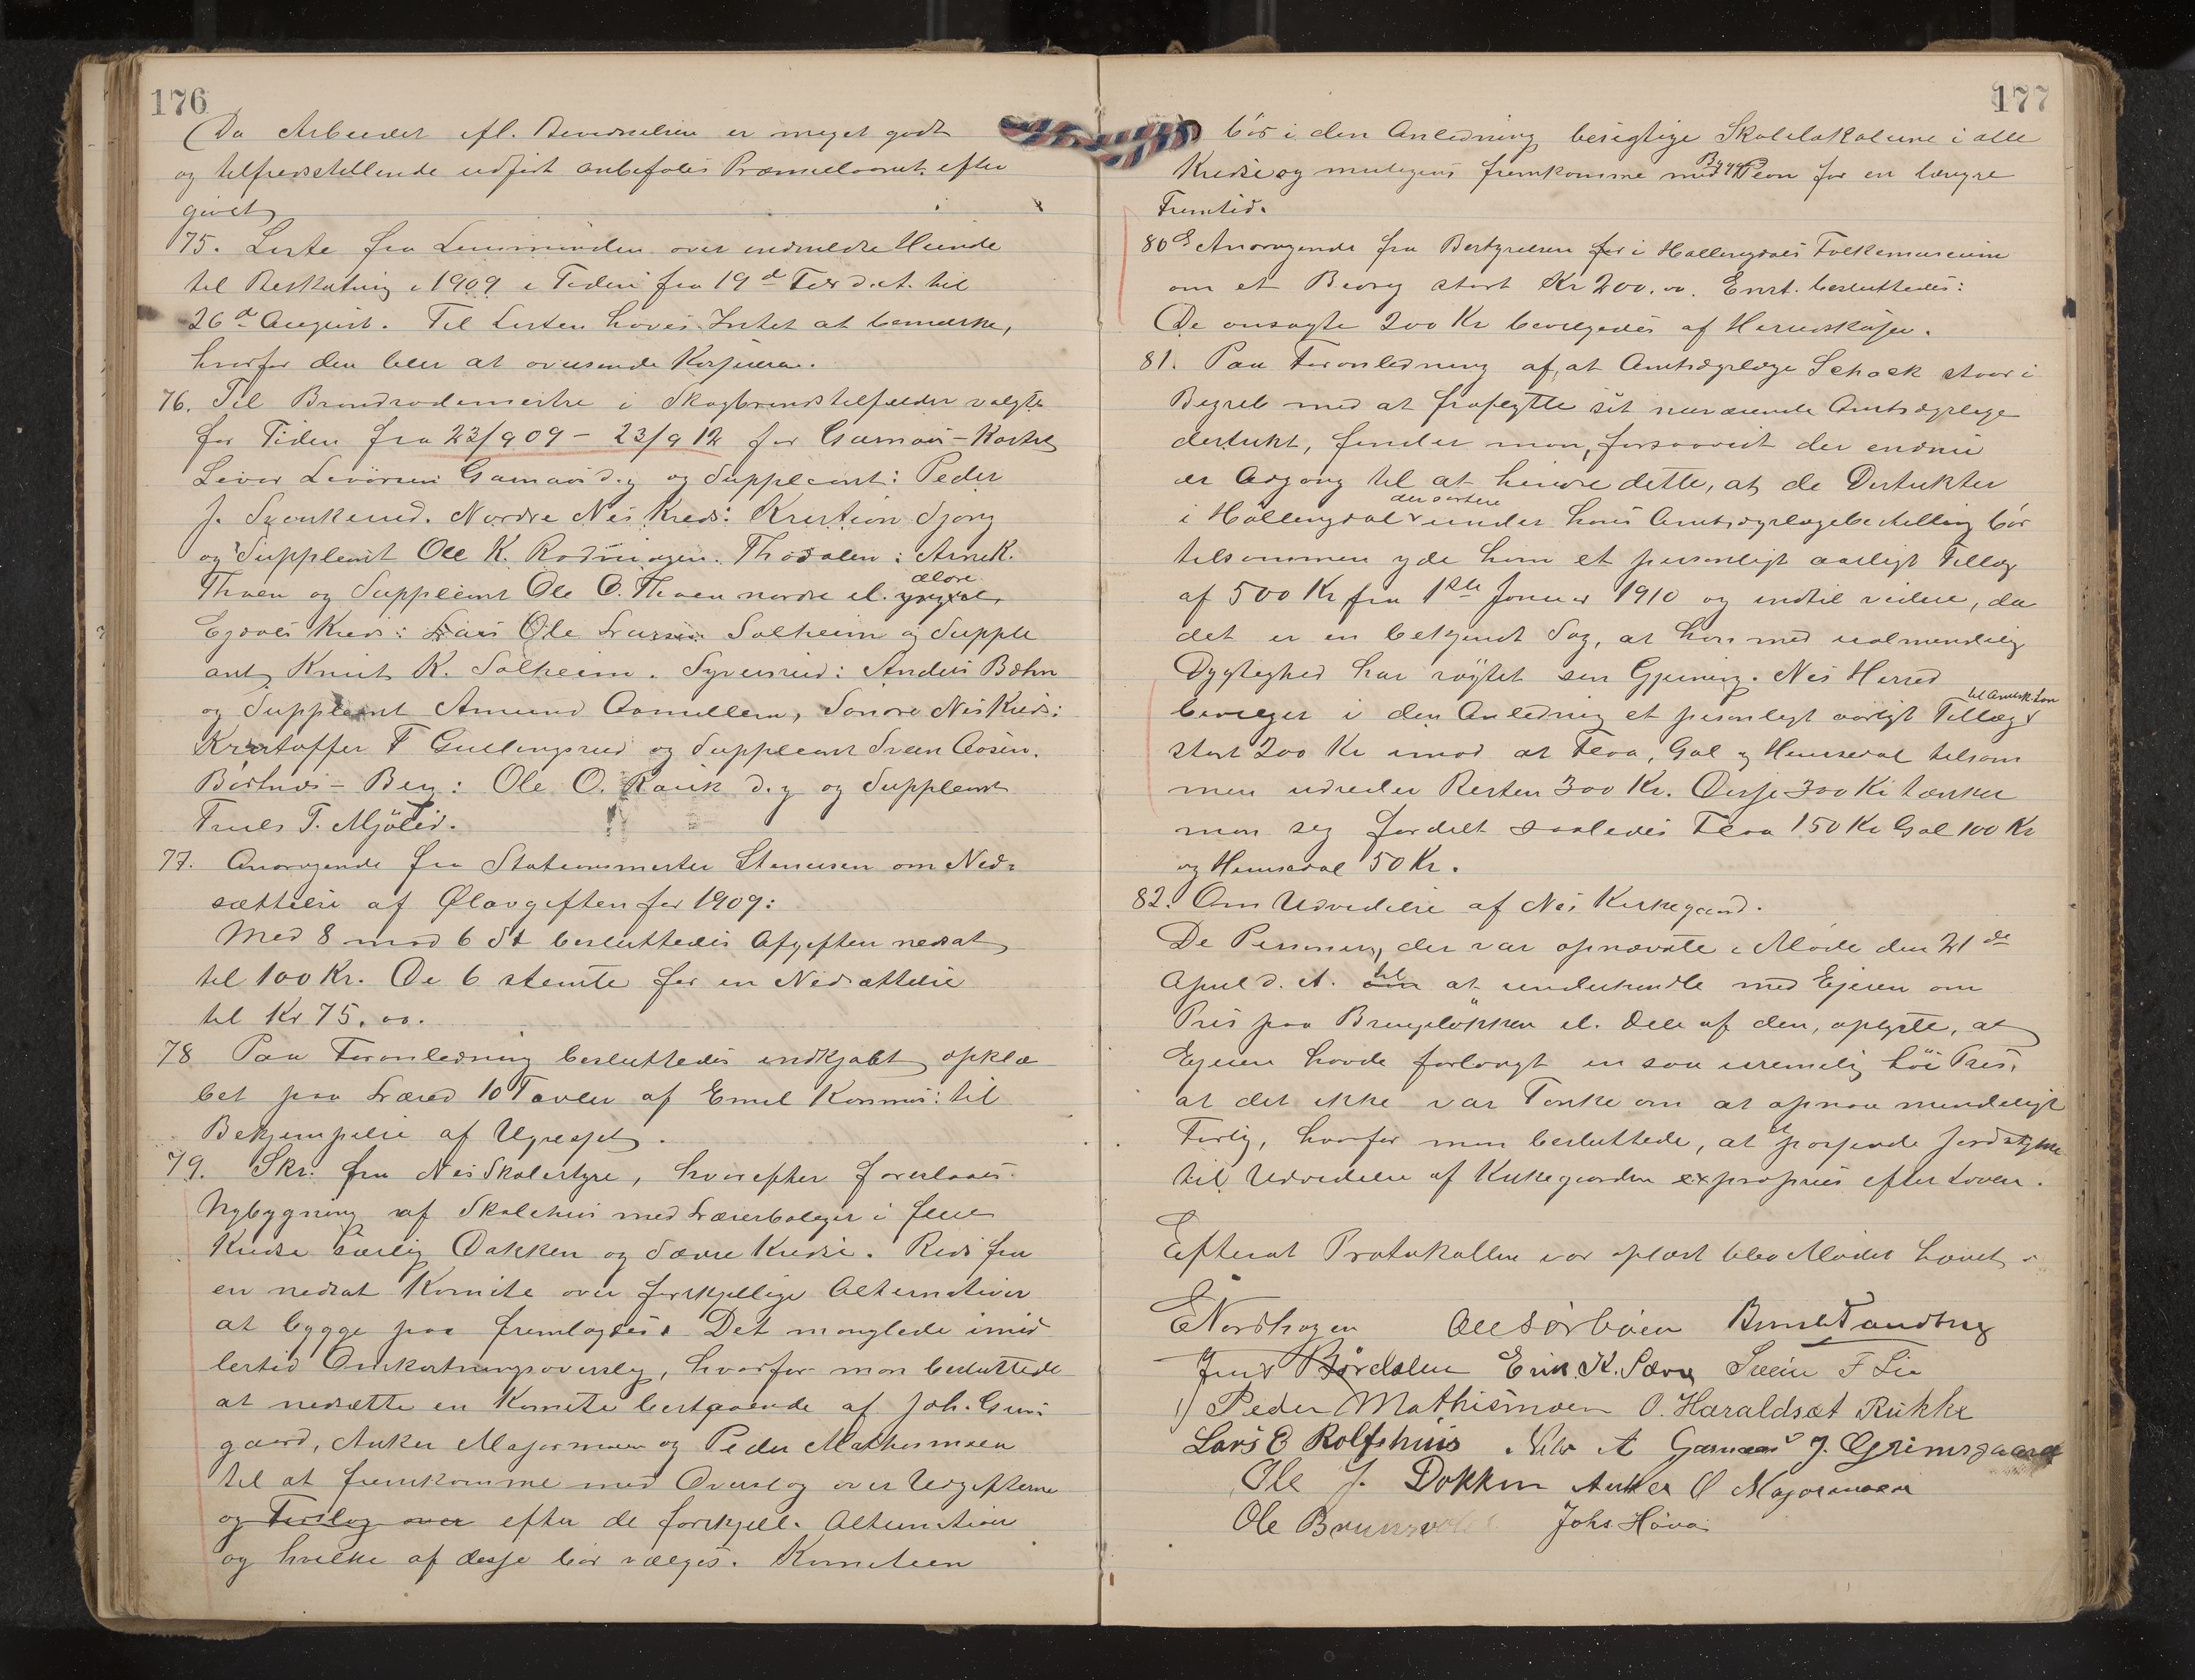 176
Da Arbeidet ifl. Bevidnelsen er meget godt
og tilfredsstillende udført anbefales Præmielaanet efter
givet
75. Liste fra Lensmanden over indmeldte Hunde
til Beskatning i 1909 i Tiden fra 19de Febr d. A. til
26de August. Til Listen haves Intet at bemærke,
hvorfor den blev at oversende Kasserer.
76. Til Brandrodemestre i Skogbrandstilfælder valgte
for Tiden fra 23/9 09 - 23/9 12 for Garnaas - Kastet
Levor Levorsen Garnaas d. y og Suppleant: Peder
J. Svenkerud. Nordre Nes Kreds: Kristian Sjong
og Suppleant Ole K. Rodningen. Thodalen: Arne K.
Thoen og Suppleant Ole O. Thoen nordre el. yngre ældre
Egdals Kreds: Lars Ole Larsen Solheim og Supple
ant Knut K. Solheim. Syversrud: Anders Bøhn
og Suppleant Amund Aamellem, Søndre Nes Kreds:
Kristoffer T Gullingsrud og Suppleant Svein Aasen.
Børtnes - Berg: Ole O. Ravik d. y og Suppleant
Truls T. Mjölid.
77. Andragende fra Stationsmester Stenersen om Ned-
sættelse af Ølavgiften for 1909:
Med 8 mod 6 St besluttedes Afgiften nedsat
til 100 Kr. De 6 stemte for en Nedsættelse
til Kr 75.00.
78 Paa Foranledning besluttedes indkjøbt opklæ
bet paa Lærred 10 Tavler af Emil Korsmo: til
Bekjempelse af Ugræset.
79. Skr. fra Nes Skolestyre, hvorefter foreslaaes
Nybygning af Skolehus med Lærerbolıger i flere
Kredse særlig Dokken og Sævre Kredse. Reds fra
en nedsat Komite over forskjellige Alternativer
at bygge paa fremlagdes. Det manglede imid
lertid Omkostningsoverslag, hvorfor man besluttede
at nedsætte en Komite bestaaende af Joh. Grims
gaard, Anker Majormoen og Peder Mathismoen
til at fremkomme med Overslag over Udgifterne
og Forslag over efter de forskjell. Alternativer
og hvilke af desse bør vælges. Komiteen
177
bör i den Anledning besigtige Skolelokalerne i alle
Kredse og muligens fremkomme med Byggeplan for en længre
Fremtid.
80 Andragende fra Bestyrelsen for i Hallingdals Folkemuseum
om et Bidrag stort Kr 200.00. Enst. besluttedes:
De ansøgte 200 Kr bevilgedes af Herredskassen.
81. Paa Foranledning af, at Amtsdyrlæge Schack staar i
Begreb med at fraflytte sit nuværende Amtsdyrlæge
distrikt, finder man, forsaavidt der endnu
er Adgang til at hindre dette, at de Distrikter
i Hallingdal der sortere under hans Amtsdyrlægebestilling bör
tilsammen yde ham et personligt aarligt Tillæg
af 500 Kr fra 1ste Januar 1910 og indtil videre, da
det er en bekjendt Sag, at han med ualmindelig
Dygtighed har røgtet sin Gjerning. Nes Herred
bevilger i den Anledning et personligt aarligt Tillæg til
stort 200 Kr imod at Flaa, Gol og Hemsedal tilsam
men udreder Resten 300 Kr. Disse 300 Kr tænker
man seg fordelt saaledes Flaa 150 Kr Gol 100 Kr
og Hemsedal 50 Kr.
82. Om Udvidelse af Nes Kirkegaard.
De Personer, der var opnævnte i Møde den 21de
April d. A. om til at underhandle med Ejeren om
Pris paa Brengeløkken el. Dele af den, oplyste, at
Ejeren havde forlangt en saa urimelig høi Pris,
at det ikke var Tanke om at opnaa mindeligt
Forlig, hvorfor man besluttede, at passende Jordstykke
til Udvidelse af Kirkegaarden exproprieres efter Loven.
Efterat Protokollen var oplæst blev Mødet hævet.
E Nordhagen Ole Sørbøen Brunle Tandberg
Knut Børdalen Erik K. Sævre Svein T Lie
Peder Mathismoen O. Haraldset Rukke
Lars E Rolfshus Nils A Garnaas J. Grimsgaard
Ole J. Dokken Anker O Majormoen
Ole Brunsvold Johs Høva